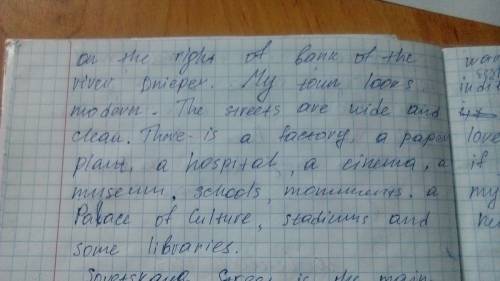 on the right of bank of the
river Dnieper. My town looks
modern. The streets are wide and
clean. There is a factory, a paper
plant, a hospital, a cinema, a
museum, schools, monuments, a
Palace of Culture, stadiums and
some libraries.
Sovetskaya Street is the main
love
if
my